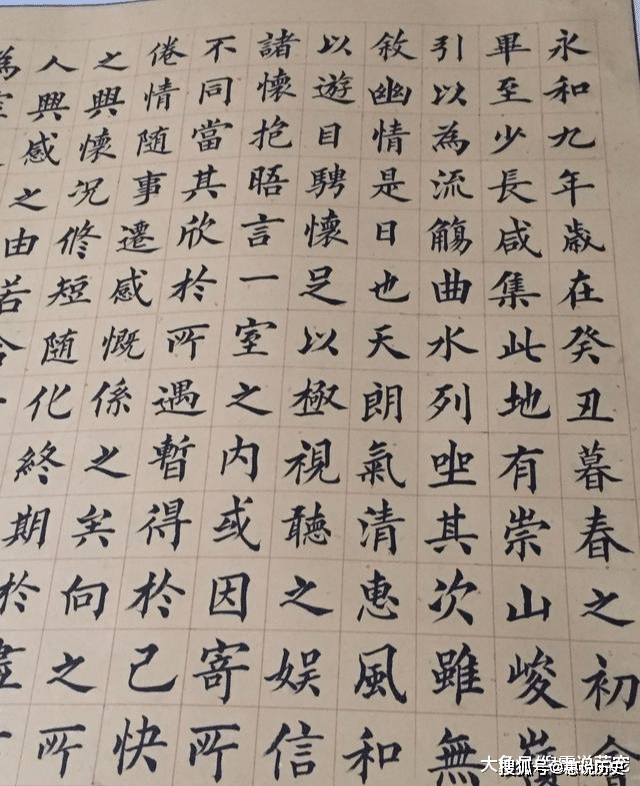 永和九年歲在癸丑暮春之初會
畢至少長咸集此地有崇山峻嶺
引以為流觴曲水列坐其次雖無
敘幽情是日也天朗氣清惠風和
以遊目騁懷足以極視聽之娛信
諸懷抱晤言一室之內或因寄所
不同當其欣於所遇暫得於己快
倦情随事遷感慨係之矣向之所
之興懷况修短随化終期於盡
人興感之由若合
為
搜狐号@慧说历史